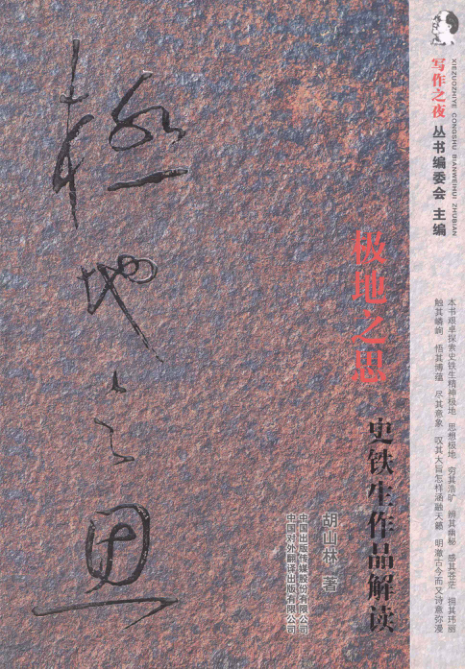 極地之思
XIEZUOZHIYE CONGSHU BIANWEIHUI ZHUBIAN
写作之夜 丛书编委会 主编
极地之思
史铁生作品解读
胡山林 著
中国出版传媒股份有限公司
中国对外翻译出版有限公司
探索史铁生精神极地 思想极地 感其苍茫
触其嶙峋 悟其博蕴 尽其意象 叹其大旨怎样涵融天籁 明澈古今而又诗意弥漫